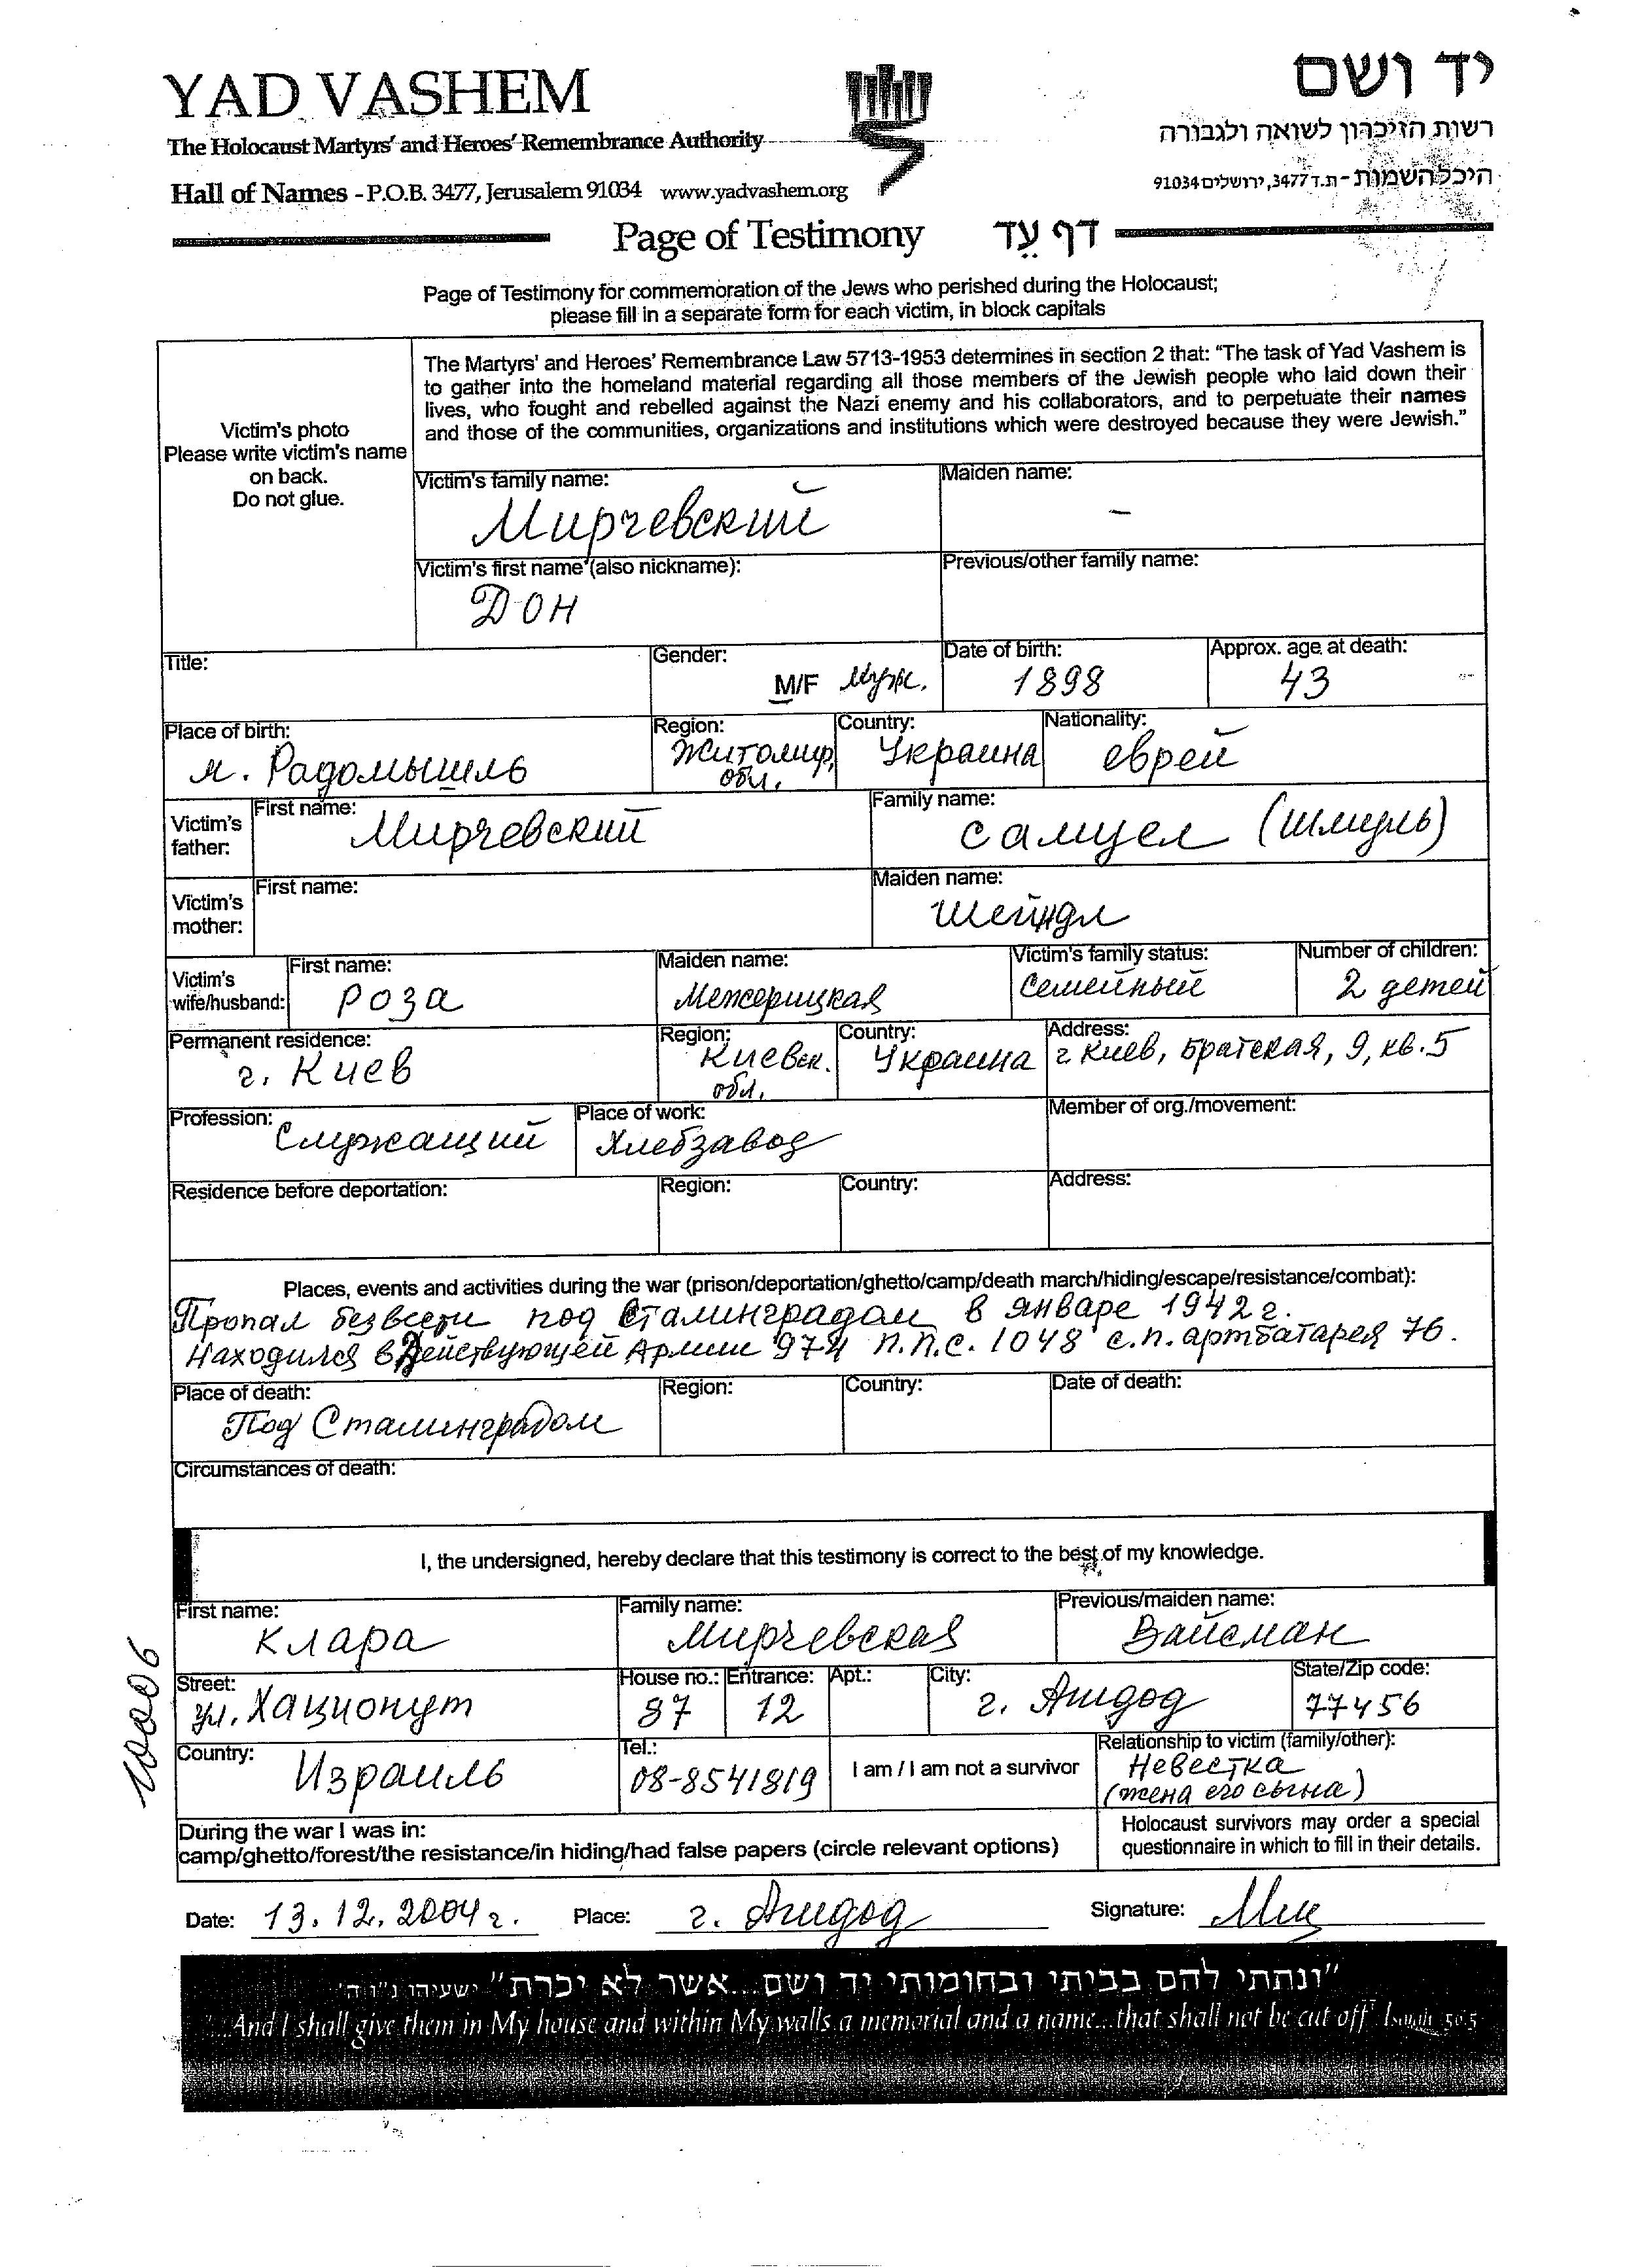 YAD VASHEM
יד ושם
The Holocaust Martyrs' and Heroes' Remembrance Authority
רשות הזיכרון לשואה ולגבורה
Hall of Names - P.O.B. 3477, Jerusalem 91034 www.yadvashem.org
היכל השמות - ת.ד 3477, ירושלים 91034
Page of Testimony דף עֵד
Page of Testimony for commemoration of the Jews who perished during the Holocaust;
please fill in a separate form for each victim, in block capitals
Victim's photo
Please write victim's name
on back.
Do not glue.
The Martyrs' and Heroes' Remembrance Law 5713-1953 determines in section 2 that: "The task of Yad Vashem is
to gather into the homeland material regarding all those members of the Jewish people who laid down their
lives, who fought and rebelled against the Nazi enemy and his collaborators, and to perpetuate their names
and those of the communities, organizations and institutions which were destroyed because they were Jewish."
Victim's family name: Maiden name:
Мирчевский –
Victim's first name (also nickname): Previous/other family name:
ДОН
Title: Gender: Date of birth: Approx. age at death:
M/F муж. 1898 43
Place of birth: Region: Country: Nationality:
м. Радомышль Житомир. обл. Украина еврей
Victim's father: First name: Family name:
Мирчевский Самуел (Шмуль)
Victim's mother: First name: Maiden name:
Шейндл
Victim's wife/husband: First name: Maiden name: Victim's family status: Number of children:
Роза Межерицкая Семейный 2 детей
Permanent residence: Region: Country: Address:
г. Киев Киевск. обл. Украина г Киев, Братская, 9, кв. 5
Profession: Place of work: Member of org./movement:
Служащий Хлебзавод
Residence before deportation: Region: Country: Address:
Places, events and activities during the war (prison/deportation/ghetto/camp/death march/hiding/escape/resistance/combat):
Пропал безвести под Сталинградом в январе 1942 г.
Находился в Действующей Армии 974 П.П.С. 1048 с.п. артбатарея 76.
Place of death: Region: Country: Date of death:
Под Сталинградом
Circumstances of death:
I, the undersigned, hereby declare that this testimony is correct to the best of my knowledge.
First name: Family name: Previous/maiden name:
Клара Мирчевская Вайсман
Street: House no.: Entrance: Apt.: City: State/Zip code:
ул. Хационут 87 12 г. Ашдод 77456
Country: Tel.: I am / I am not a survivor Relationship to victim (family/other):
Израиль 08-8541819 Невестка
(жена его сына)
During the war I was in:
camp/ghetto/forest/the resistance/in hiding/had false papers (circle relevant options)
Holocaust survivors may order a special
questionnaire in which to fill in their details.
Date: 13.12.2004 г. Place: г. Ашдод Signature:
"ונתתי להם בביתי ובחומותי יד ושם...אשר לא יכרת" ישעיהו נ"ו ה'
"...And I shall give them in My house and within My walls a memorial and a name...that shall not be cut off" Isaiah 56:5